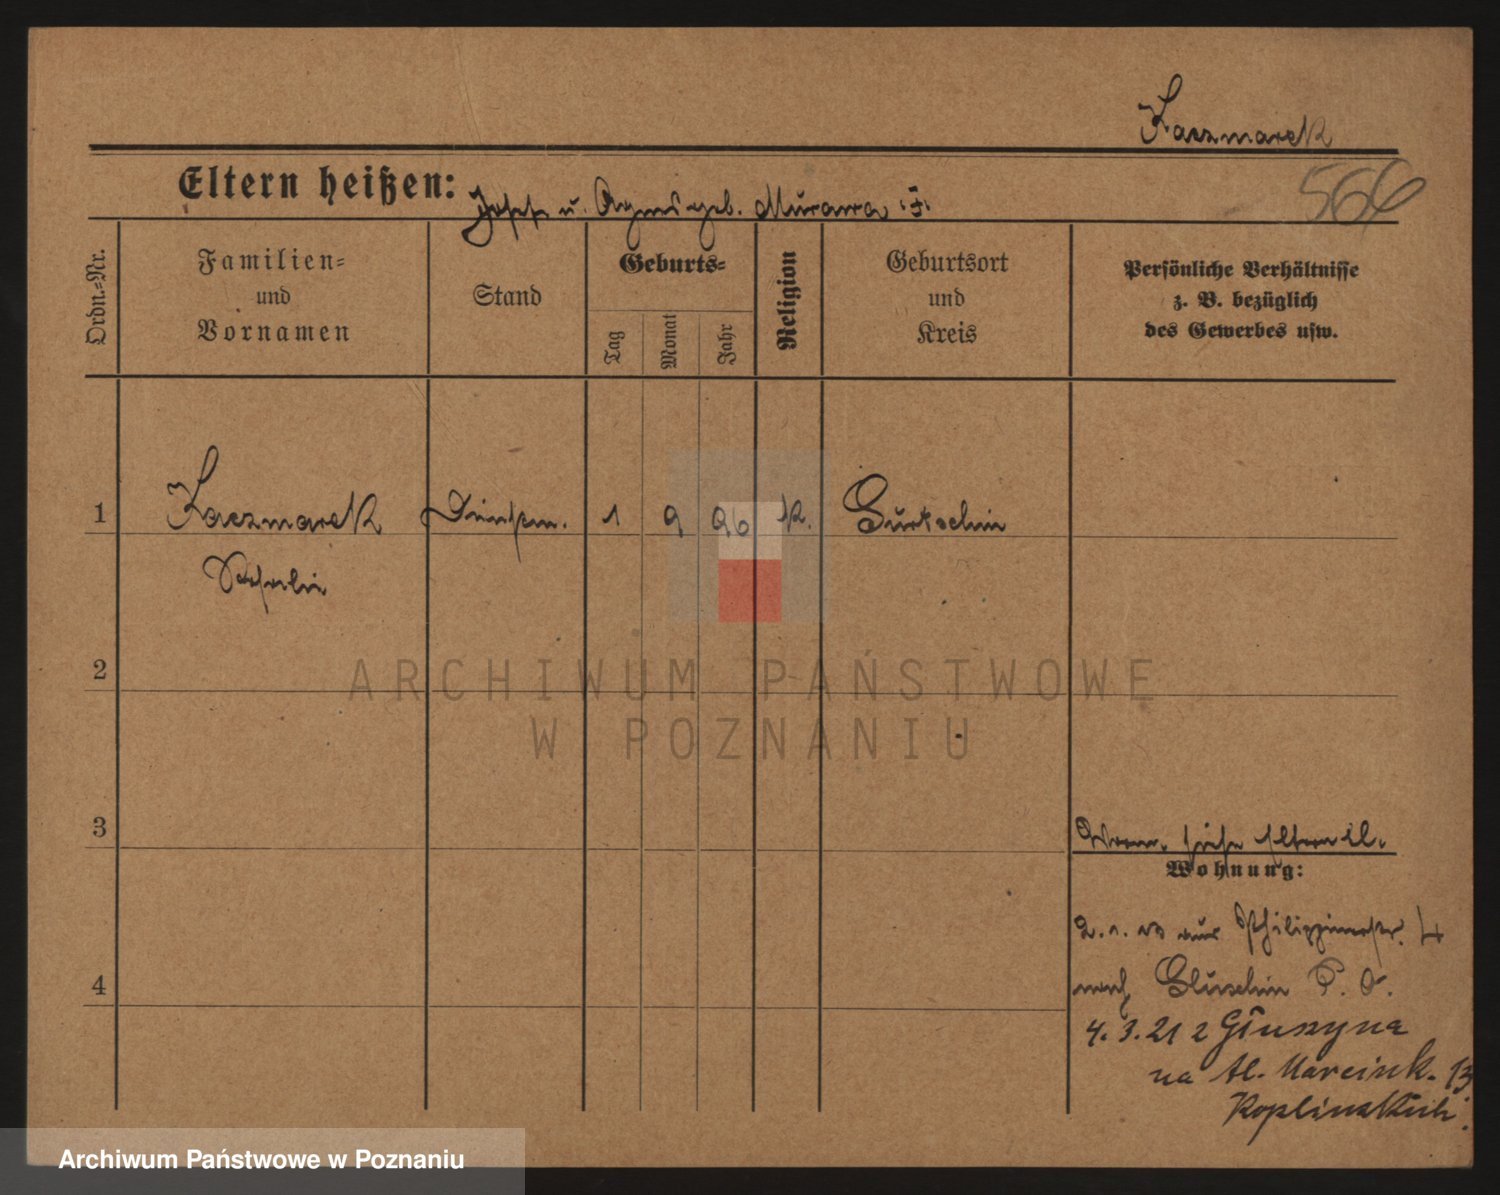 Kaczmarek
Eltern heißen: Josef u. Agnes geb. Murawa
566
Ordn.-Nr.
Familien-
und
Vornamen
Stand
Geburts-
Tag
Monat
Jahr
Religion
Geburtsort
und
Kreis
Persönliche Verhältnisse
z. B. bezüglich
des Gewerbes usw.
1 Kaczmarek 1 9 96 k. Gurtschin
2
3
siehe Eltern
Wohnung:
aus Philippinenstr. 4
nach Gluschin P. O.
4
4. 3. 21 z Głuszyna
na Al. Marcink. 13
ARCHIWUM PAŃSTWOWE
W POZNANIU
Archiwum Państwowe w Poznaniu